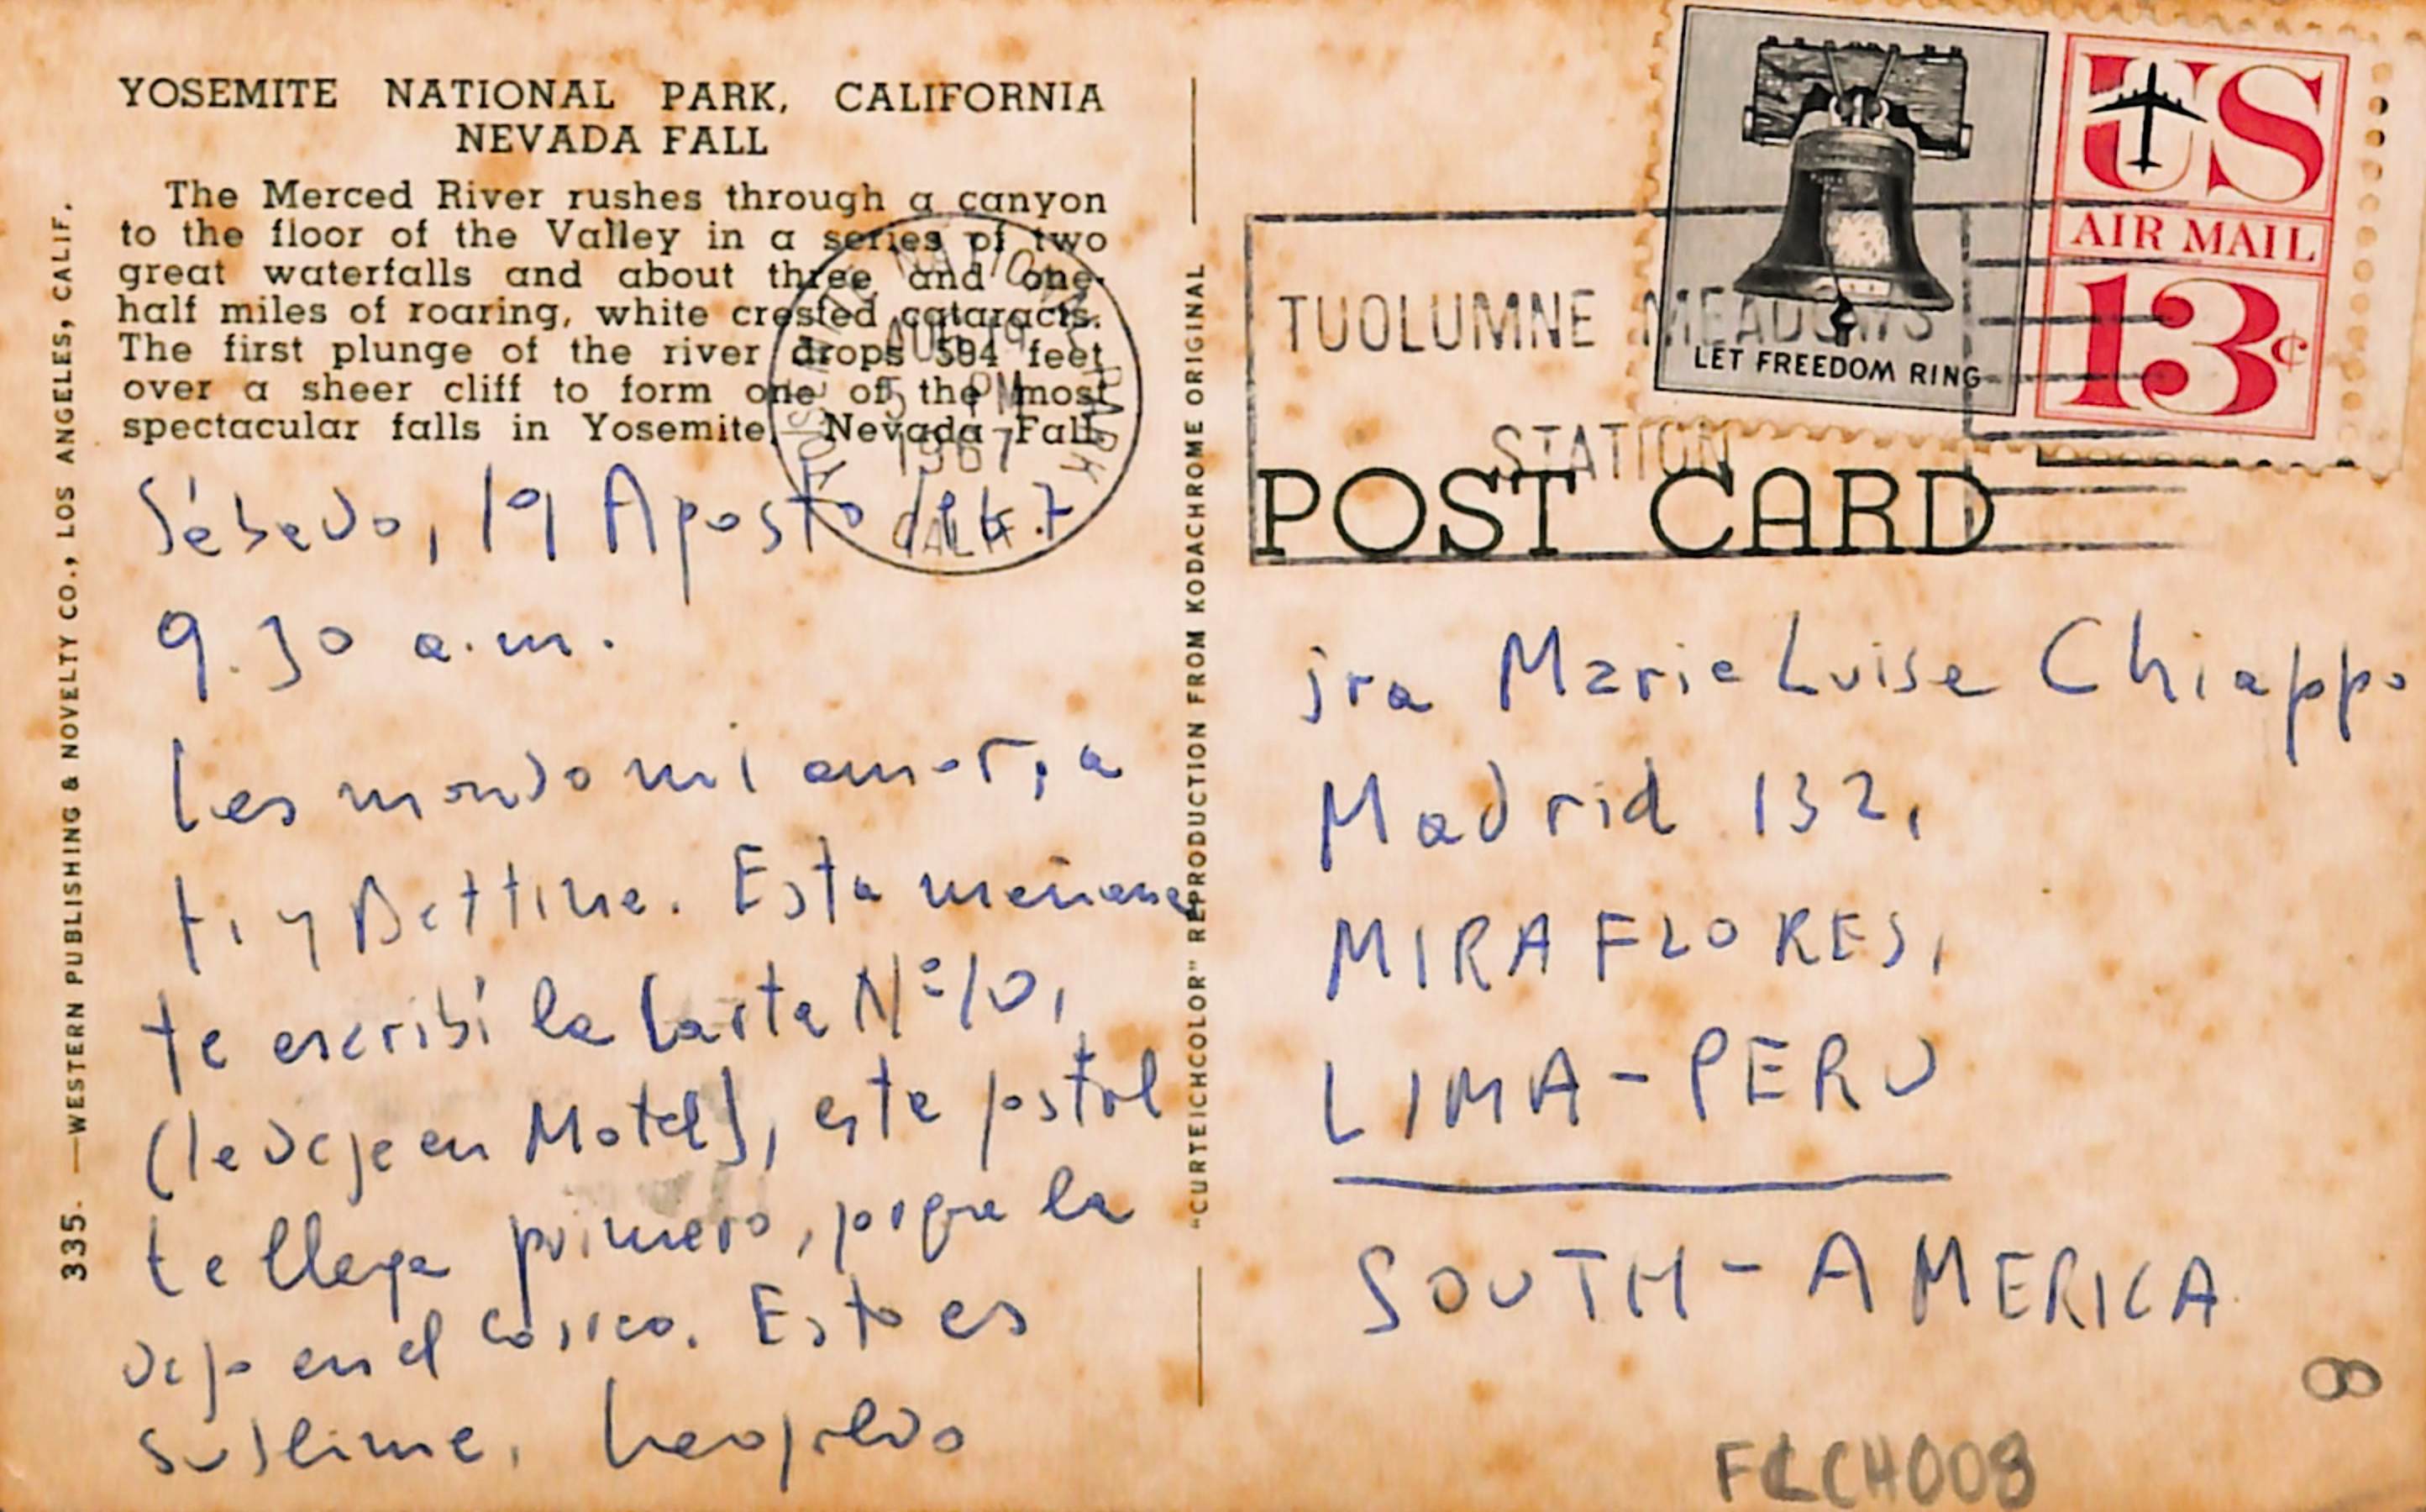 YOSEMITE NATIONAL PARK, CALIFORNIA
NEVADA FALL
The Merced River rushes through a canyon
to the floor of the Valley in a series of two
great waterfalls and about three and one-
half miles of roaring, white crested cataracts.
The first plunge of the river drops 594 feet
over a sheer cliff to form one of the most
spectacular falls in Yosemite, Nevada Fall.
335. —WESTERN PUBLISHING & NOVELTY CO., LOS ANGELES, CALIF.
YOSEMITE NATIONAL PARK
AUG 19
5 PM
1967
CALIF.
Sábado, 19 Agosto de 67
9.30 a.m.
Les mando mi amor, a
ti y Bettina. Esta mañana
te escribí la Carta Nº 10,
(la dejé en Motel), esta postal
te llega primero, porque la
dejo en el correo. Esto es
sublime. Leopoldo
"CURTEICHCOLOR" REPRODUCTION FROM KODACHROME ORIGINAL
LET FREEDOM RING
US
AIR MAIL
13¢
TUOLUMNE MEADOWS
STATION
POST CARD
Sra Maria Luisa Chiappo
Madrid 132,
MIRAFLORES,
LIMA-PERU
SOUTH-AMERICA
8
FLCH008